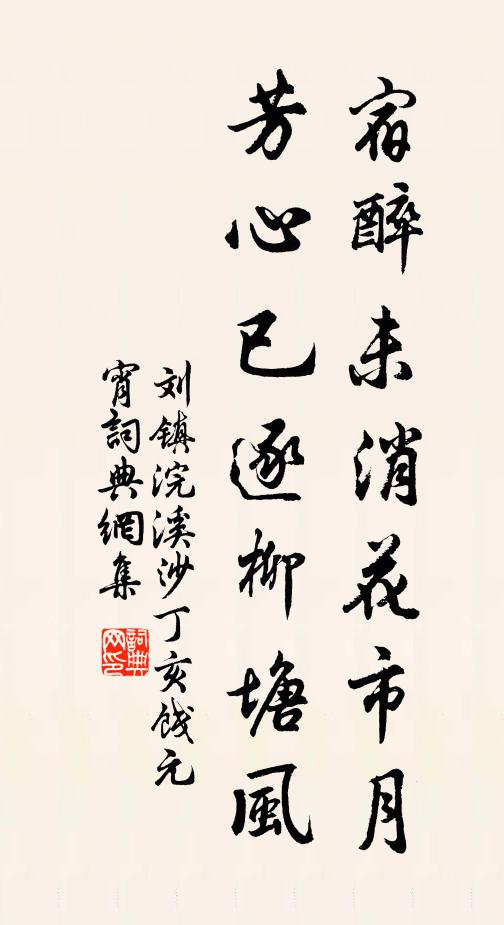 宿醉未消花市月
芳心已逐柳塘風
刘镇浣溪沙丁亥饯元
宵詞典網集
詞典网印